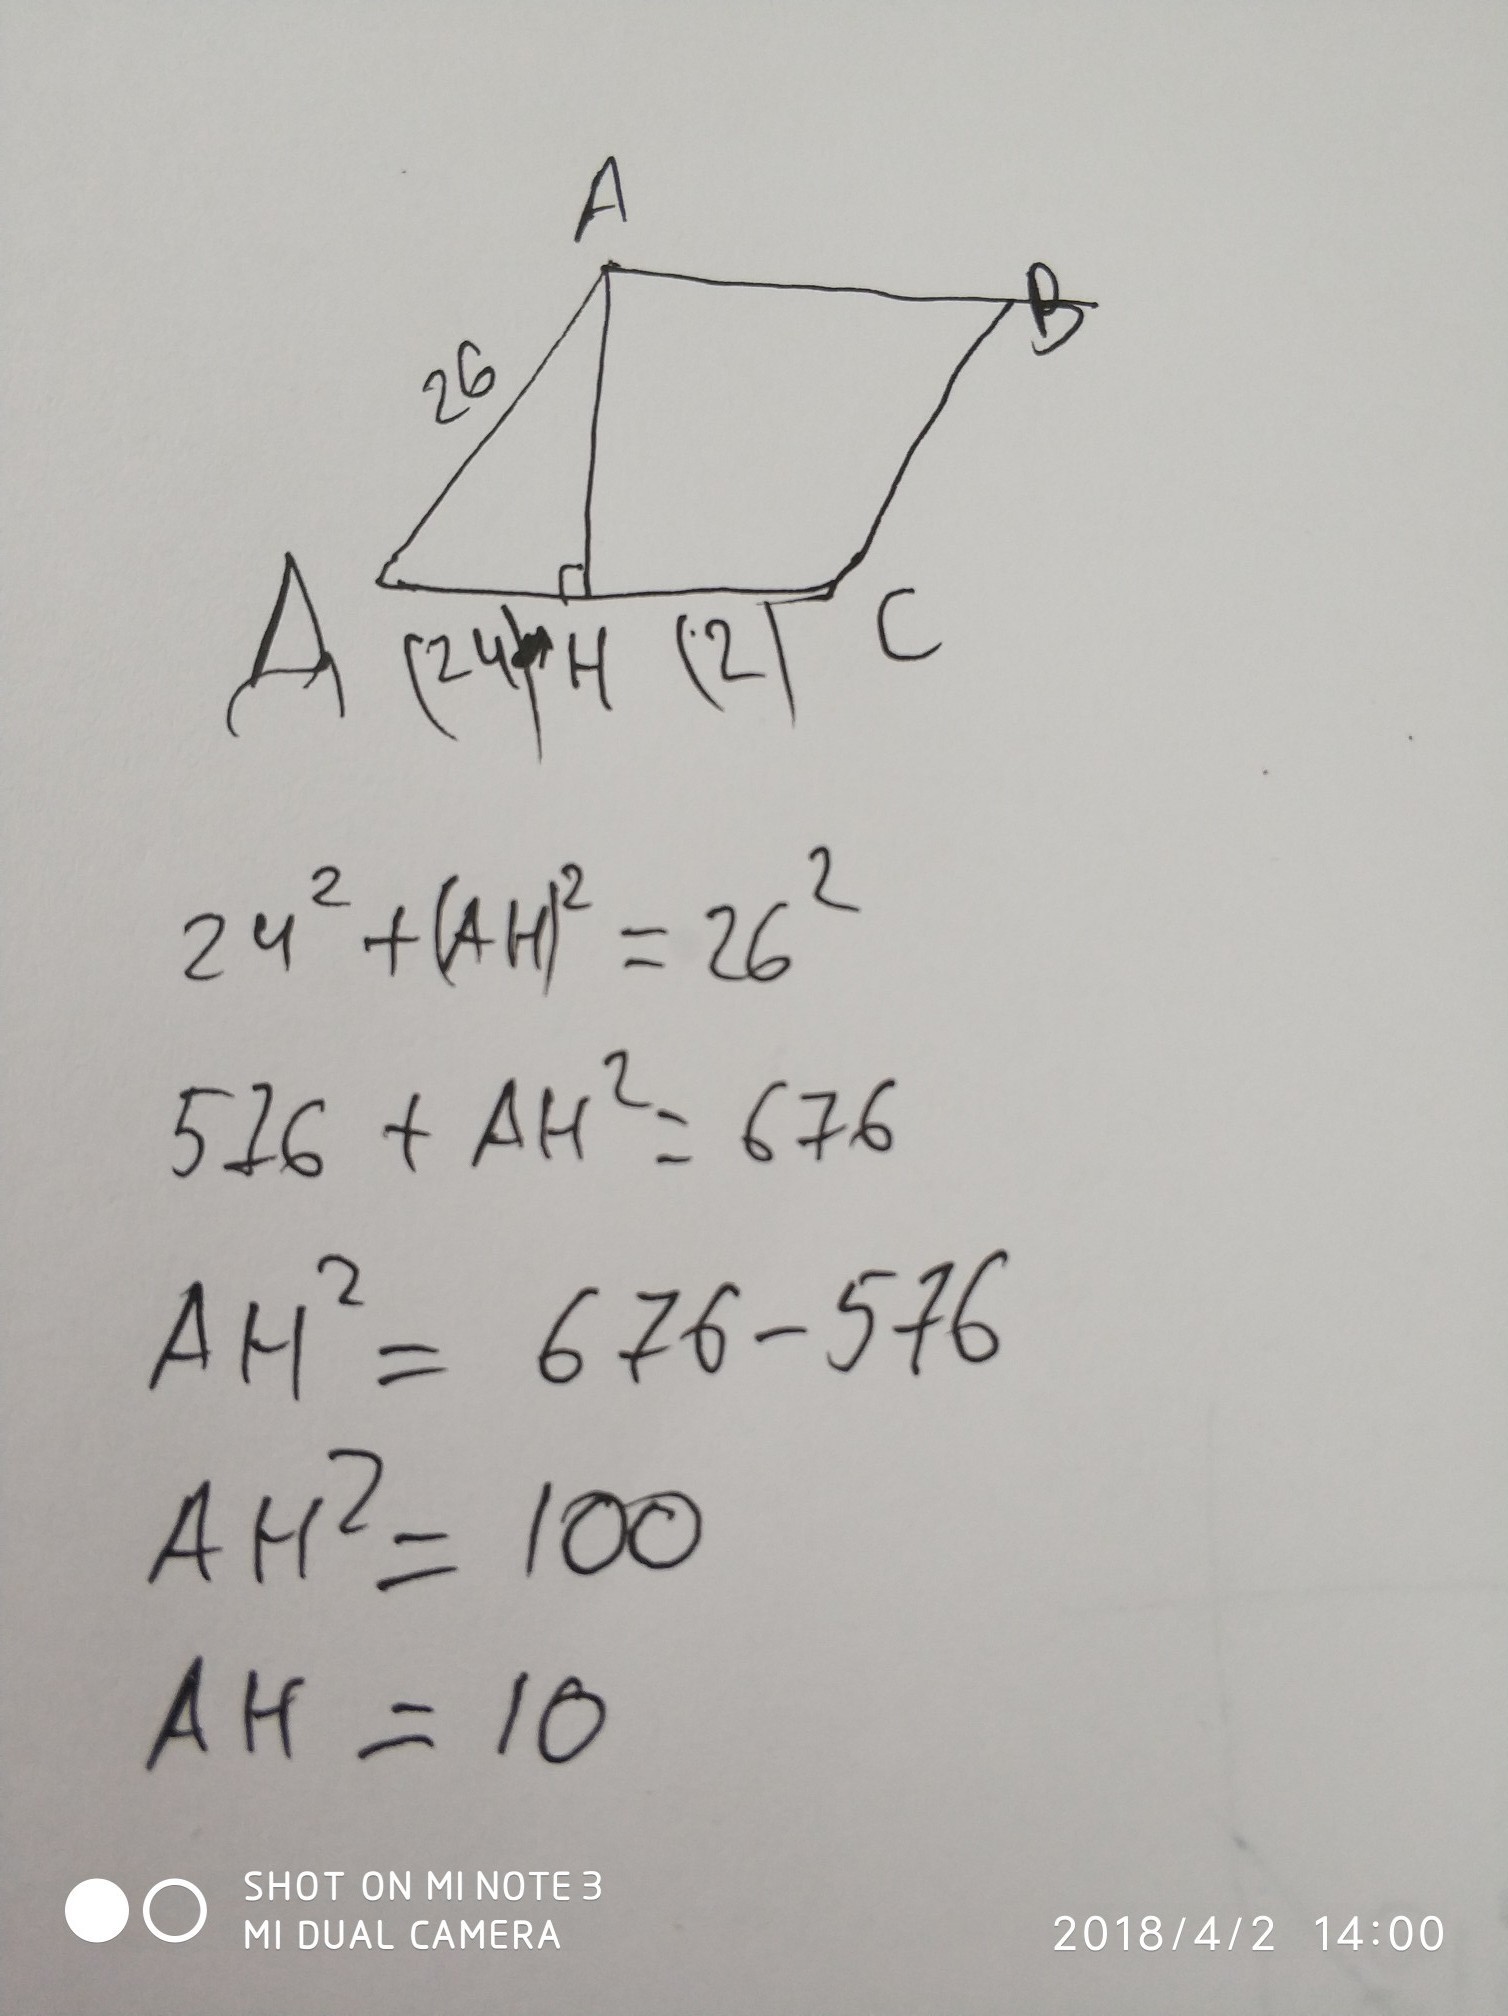 A
B
26
Д (24) H (2) C
24² + (AH)² = 26²
576 + AH² = 676
AH² = 676 - 576
AH² = 100
AH = 10
SHOT ON MI NOTE 3
MI DUAL CAMERA
2018/4/2 14:00